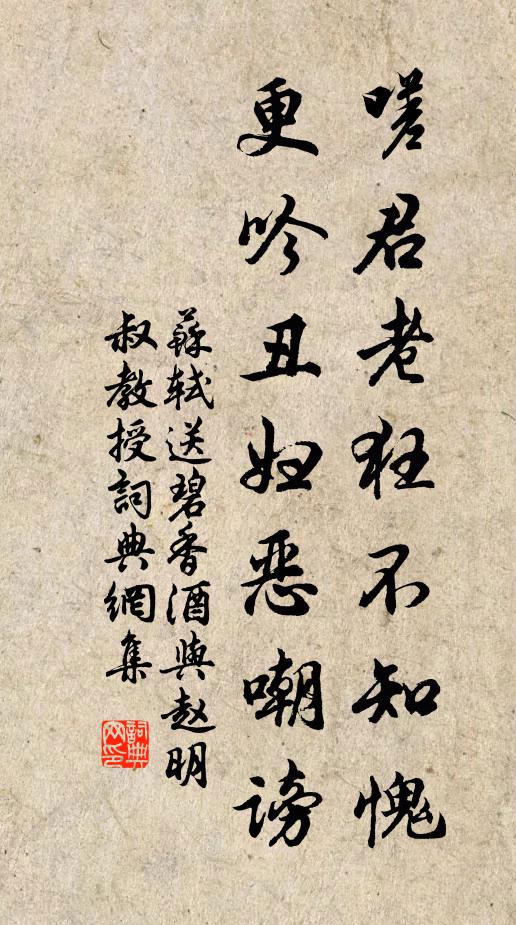 嗟君老狂不知愧
更吟丑妇恶嘲謗
蘇軾送碧香酒與赵明
叔教授詞典網集
詞典